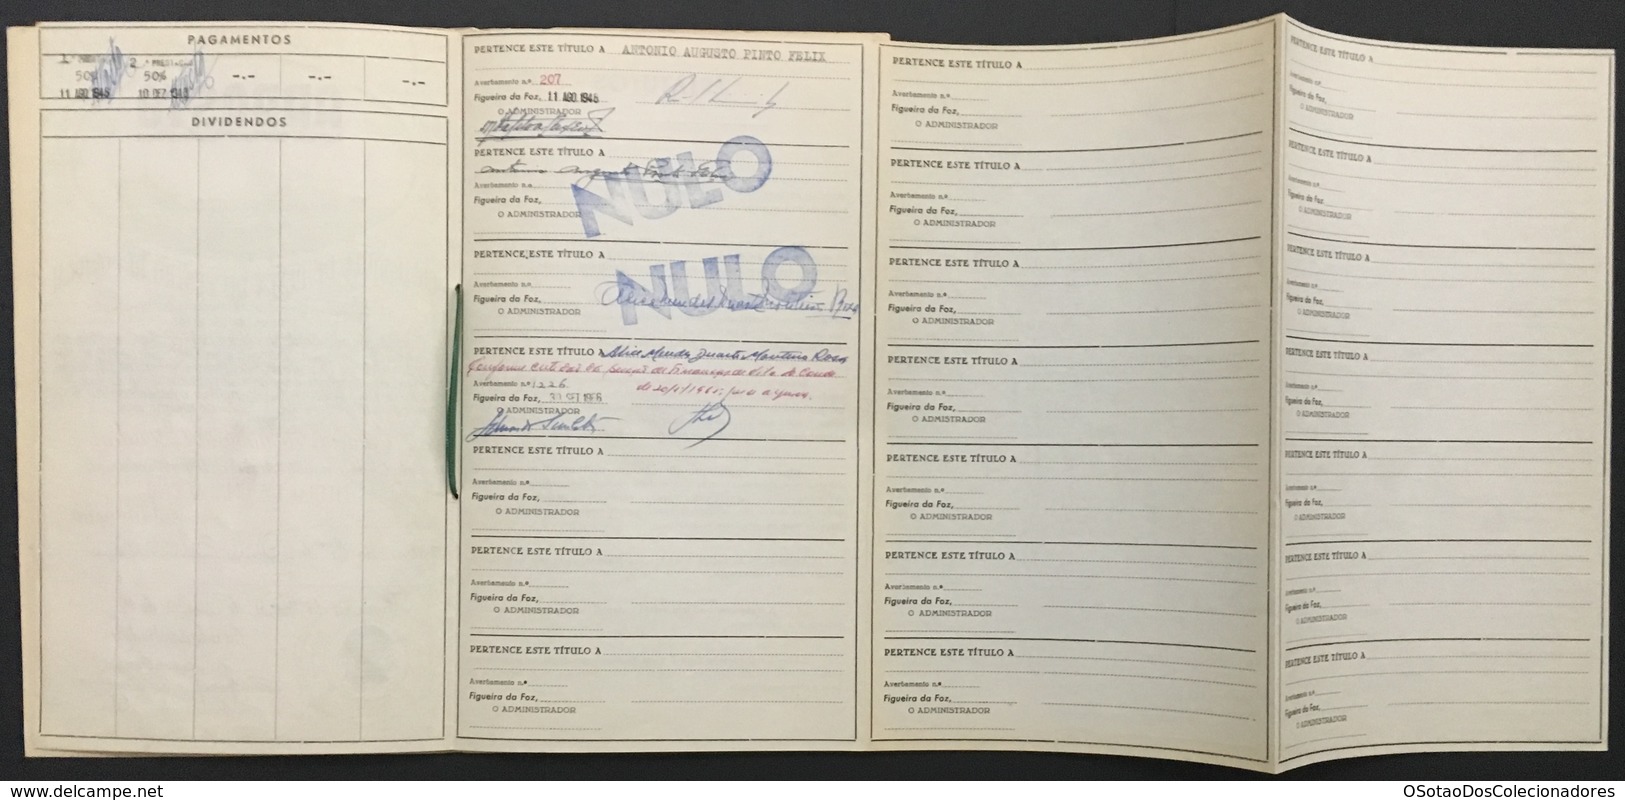 PAGAMENTOS
1.ª 2.ª PREST
50% 50% -.- -.- -.-
11 AGO 1948 10 DEZ 1948
DIVIDENDOS
PERTENCE ESTE TÍTULO A ANTONIO AUGUSTO PINTO FELIX
Averbamento n.º 207
Figueira da Foz, 11 AGO 1948
O ADMINISTRADOR
PERTENCE ESTE TÍTULO A
Antonio Augusto Pinto Felix
Averbamento n.º
NULO
Figueira da Foz,
O ADMINISTRADOR
PERTENCE ESTE TÍTULO A
NULO
Averbamento n.º
Figueira da Foz, Alice Mendes Duarte Monteiro Rosa
O ADMINISTRADOR
PERTENCE ESTE TÍTULO A Alice Mendes Duarte Monteiro Rosa
Conforme certidão da Secção de Finanças de Vila do Conde
Averbamento n.º 1226
Figueira da Foz, 30 SET 1966
O ADMINISTRADOR
PERTENCE ESTE TÍTULO A
Averbamento n.º
Figueira da Foz,
O ADMINISTRADOR
PERTENCE ESTE TÍTULO A
Averbamento n.º
Figueira da Foz,
O ADMINISTRADOR
PERTENCE ESTE TÍTULO A
Averbamento n.º
Figueira da Foz,
O ADMINISTRADOR
PERTENCE ESTE TÍTULO A
Averbamento n.º
Figueira da Foz,
O ADMINISTRADOR
PERTENCE ESTE TÍTULO A
Averbamento n.º
Figueira da Foz,
O ADMINISTRADOR
PERTENCE ESTE TÍTULO A
Averbamento n.º
Figueira da Foz,
O ADMINISTRADOR
PERTENCE ESTE TÍTULO A
Averbamento n.º
Figueira da Foz,
O ADMINISTRADOR
PERTENCE ESTE TÍTULO A
Averbamento n.º
Figueira da Foz,
O ADMINISTRADOR
PERTENCE ESTE TÍTULO A
Averbamento n.º
Figueira da Foz,
O ADMINISTRADOR
PERTENCE ESTE TÍTULO A
Averbamento n.º
Figueira da Foz,
O ADMINISTRADOR
PERTENCE ESTE TÍTULO A
Averbamento n.º
Figueira da Foz,
O ADMINISTRADOR
PERTENCE ESTE TÍTULO A
Averbamento n.º
Figueira da Foz,
O ADMINISTRADOR
PERTENCE ESTE TÍTULO A
Averbamento n.º
Figueira da Foz,
O ADMINISTRADOR
PERTENCE ESTE TÍTULO A
Averbamento n.º
Figueira da Foz,
O ADMINISTRADOR
PERTENCE ESTE TÍTULO A
Averbamento n.º
Figueira da Foz,
O ADMINISTRADOR
PERTENCE ESTE TÍTULO A
Averbamento n.º
Figueira da Foz,
O ADMINISTRADOR
PERTENCE ESTE TÍTULO A
Averbamento n.º
Figueira da Foz,
O ADMINISTRADOR
delcampe.net
OSotaoDosColecionadores